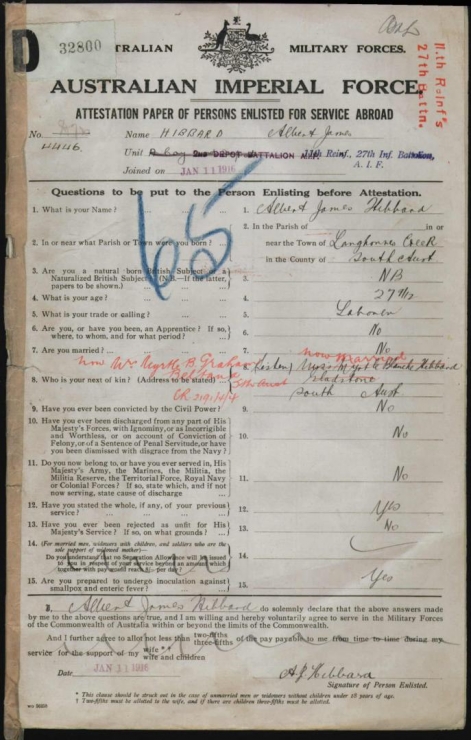 D
32800
AUSTRALIAN MILITARY FORCES.
AUSTRALIAN IMPERIAL FORCE.
11.th Reinf's
27th Battn.
ATTESTATION PAPER OF PERSONS ENLISTED FOR SERVICE ABROAD
No. 4446. Name HIBBARD Albert James
Unit 2ND DEPOT BATTALION 11th Reinf., 27th Inf. Battalion, A.I.F.
Joined on JAN 11 1916
65
Questions to be put to the Person Enlisting before Attestation.
1. What is your Name? 1. Albert James Hibbard
2. In or near what Parish or Town were you born? 2. In the Parish of in or
near the Town of Langhornes Creek
in the County of South Aust
3. Are you a natural born British Subject or a Naturalized British Subject? (N.B.—If the latter, papers to be shown.) 3. NB
4. What is your age? 4. 27
5. What is your trade or calling? 5. Labourer
6. Are you, or have you been, an Apprentice? If so, where, to whom, and for what period? 6. No
7. Are you married? 7. No
now married
now Mrs Myrtle B. Graham
8. Who is your next of kin? (Address to be stated) (sister) Miss Myrtle Hibbard
Sth Aust Gladstone
South Aust
9. Have you ever been convicted by the Civil Power? 9. No
10. Have you ever been discharged from any part of His Majesty's Forces, with Ignominy, or as Incorrigible and Worthless, or on account of Conviction of Felony, or of a Sentence of Penal Servitude, or have you been dismissed with disgrace from the Navy? 10. No
11. Do you now belong to, or have you ever served in, His Majesty's Army, the Marines, the Militia, the Militia Reserve, the Territorial Force, Royal Navy or Colonial Forces? If so, state which, and if not now serving, state cause of discharge 11. No
12. Have you stated the whole, if any, of your previous service? 12. Yes
13. Have you ever been rejected as unfit for His Majesty's Service? If so, on what grounds? 13. No
14. (For married men, widowers with children, and soldiers who are the sole support of widowed mother)—
Do you understand that no Separation Allowance will be issued to you in respect of your service beyond an amount which together with pay would reach per day? 14.
15. Are you prepared to undergo inoculation against smallpox and enteric fever? 15. Yes
I, Albert James Hibbard do solemnly declare that the above answers made by me to the above questions are true, and I am willing and hereby voluntarily agree to serve in the Military Forces of the Commonwealth of Australia within or beyond the limits of the Commonwealth.
And I further agree to allot not less than two-fifths three-fifths of the pay payable to me from time to time during my service for the support of my wife * wife and children
Date JAN 11 1916 A J Hibbard
Signature of Person Enlisted.
* This clause should be struck out in the case of unmarried men or widowers without children under 18 years of age.
† Two-fifths must be allotted to the wife, and if there are children three-fifths must be allotted.